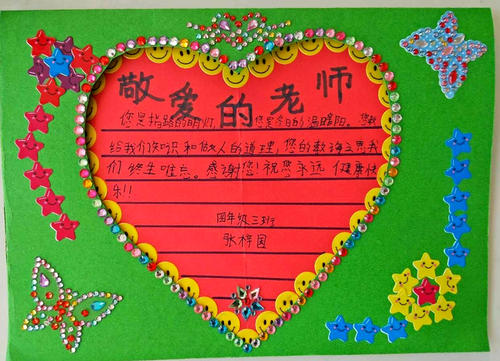 敬爱的老师
您是指路的明灯，您是冬日的温暖阳。您教
给我们知识和做人的道理，您的教诲之恩我
们终生唯忘。感谢您！祝您永远健康快
乐！！
四年级三班
张梓